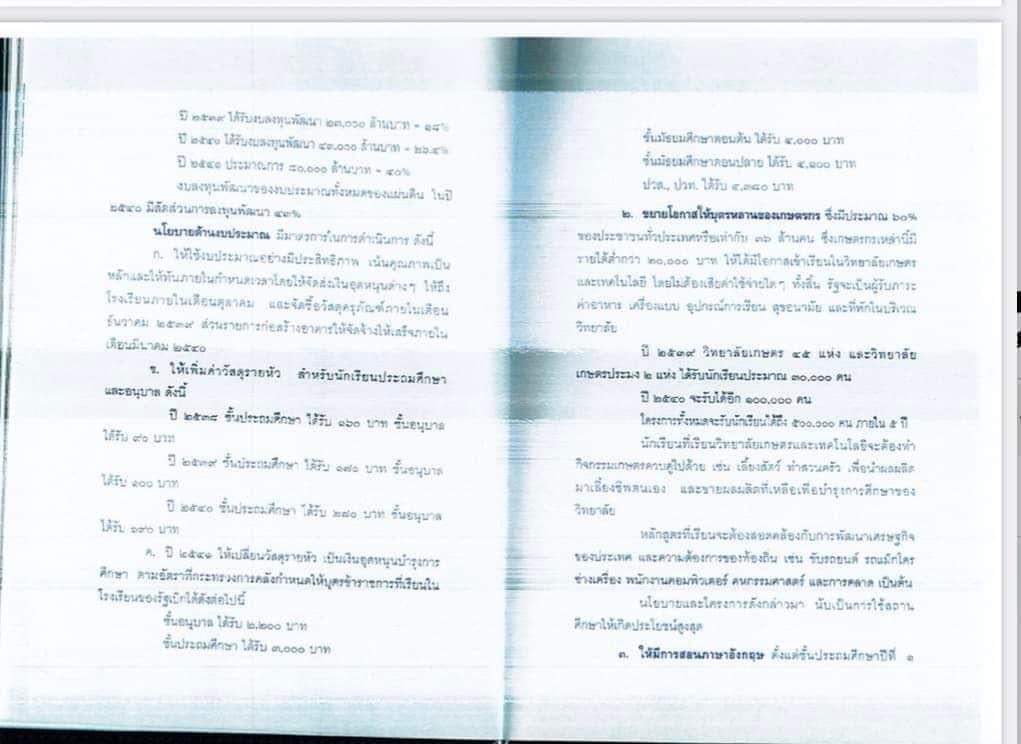 ปี ๒๕๓๙ ได้รับงบลงทุนพัฒนา ๒๓,๐๑๐ ล้านบาท = ๑๘%
ปี ๒๕๔๐ ได้รับงบลงทุนพัฒนา ๔๓,๐๑๐ ล้านบาท = ๒๖.๕%
ปี ๒๕๔๑ ประมาณการ ๘๐,๐๐๐ ล้านบาท = ๔๐%
งบลงทุนพัฒนาของงบประมาณทั้งหมดของแผ่นดิน ในปี
๒๕๔๐ มีสัดส่วนการลงทุนพัฒนา ๔๓%
นโยบายด้านงบประมาณ มีมาตรการในการดำเนินการ ดังนี้
ก. ให้ใช้งบประมาณอย่างมีประสิทธิภาพ เน้นคุณภาพเป็น
หลักและให้ทันภายในกำหนดเวลาโดยให้จัดส่งเงินอุดหนุนต่างๆ ให้ถึง
โรงเรียนภายในเดือนตุลาคม และจัดซื้อวัสดุครุภัณฑ์ภายในเดือน
ธันวาคม ๒๕๓๙ ส่วนรายการก่อสร้างอาคารให้จัดจ้างให้เสร็จภายใน
เดือนมีนาคม ๒๕๔๐
ข. ให้เพิ่มค่าวัสดุรายหัว สำหรับนักเรียนประถมศึกษา
และอนุบาล ดังนี้
ปี ๒๕๓๘ ชั้นประถมศึกษา ได้รับ ๑๖๐ บาท ชั้นอนุบาล
ได้รับ ๙๐ บาท
ปี ๒๕๓๙ ชั้นประถมศึกษา ได้รับ ๑๗๐ บาท ชั้นอนุบาล
ได้รับ ๑๐๐ บาท
ปี ๒๕๔๐ ชั้นประถมศึกษา ได้รับ ๒๘๐ บาท ชั้นอนุบาล
ได้รับ ๑๙๐ บาท
ค. ปี ๒๕๔๑ ให้เปลี่ยนวัสดุรายหัว เป็นเงินอุดหนุนบำรุงการ
ศึกษา ตามอัตราที่กระทรวงการคลังกำหนดให้บุตรข้าราชการที่เรียนใน
โรงเรียนของรัฐเบิกได้ดังต่อไปนี้
ชั้นอนุบาล ได้รับ ๒,๒๐๐ บาท
ชั้นประถมศึกษา ได้รับ ๓,๐๐๐ บาท
ชั้นมัธยมศึกษาตอนต้น ได้รับ ๔,๐๐๐ บาท
ชั้นมัธยมศึกษาตอนปลาย ได้รับ ๔,๑๐๐ บาท
ปวส., ปวท. ได้รับ ๔,๓๘๐ บาท
๒. ขยายโอกาสให้บุตรหลานของเกษตรกร ซึ่งมีประมาณ ๖๐%
ของประชาชนทั่วประเทศหรือเท่ากับ ๓๖ ล้านคน ซึ่งเกษตรกรเหล่านี้มี
รายได้ต่ำกว่า ๒๐,๐๐๐ บาท ให้ได้มีโอกาสเข้าเรียนในวิทยาลัยเกษตร
และเทคโนโลยี โดยไม่ต้องเสียค่าใช้จ่ายใดๆ ทั้งสิ้น รัฐจะเป็นผู้รับภาระ
ค่าอาหาร เครื่องแบบ อุปกรณ์การเรียน สุขอนามัย และที่พักในบริเวณ
วิทยาลัย
ปี ๒๕๓๙ วิทยาลัยเกษตร ๔๕ แห่ง และวิทยาลัย
เกษตรประมง ๒ แห่ง ได้รับนักเรียนประมาณ ๓๐,๐๐๐ คน
ปี ๒๕๔๐ จะรับได้อีก ๑๐๐,๐๐๐ คน
โครงการทั้งหมดจะรับนักเรียนได้ถึง ๕๐๐,๐๐๐ คน ภายใน ๕ ปี
นักเรียนที่เรียนวิทยาลัยเกษตรและเทคโนโลยีจะต้องทำ
กิจกรรมเกษตรควบคู่ไปด้วย เช่น เลี้ยงสัตว์ ทำสวนครัว เพื่อนำผลผลิต
มาเลี้ยงชีพตนเอง และขายผลผลิตที่เหลือเพื่อบำรุงการศึกษาของ
วิทยาลัย
หลักสูตรที่เรียนจะต้องสอดคล้องกับการพัฒนาเศรษฐกิจ
ของประเทศ และความต้องการของท้องถิ่น เช่น ขับรถยนต์ รถแม็คโคร
ช่างเครื่อง พนักงานคอมพิวเตอร์ คหกรรมศาสตร์ และการตลาด เป็นต้น
นโยบายและโครงการดังกล่าวมา นับเป็นการใช้สถาน
ศึกษาให้เกิดประโยชน์สูงสุด
๓. ให้มีการสอนภาษาอังกฤษ ตั้งแต่ชั้นประถมศึกษาปีที่ ๑